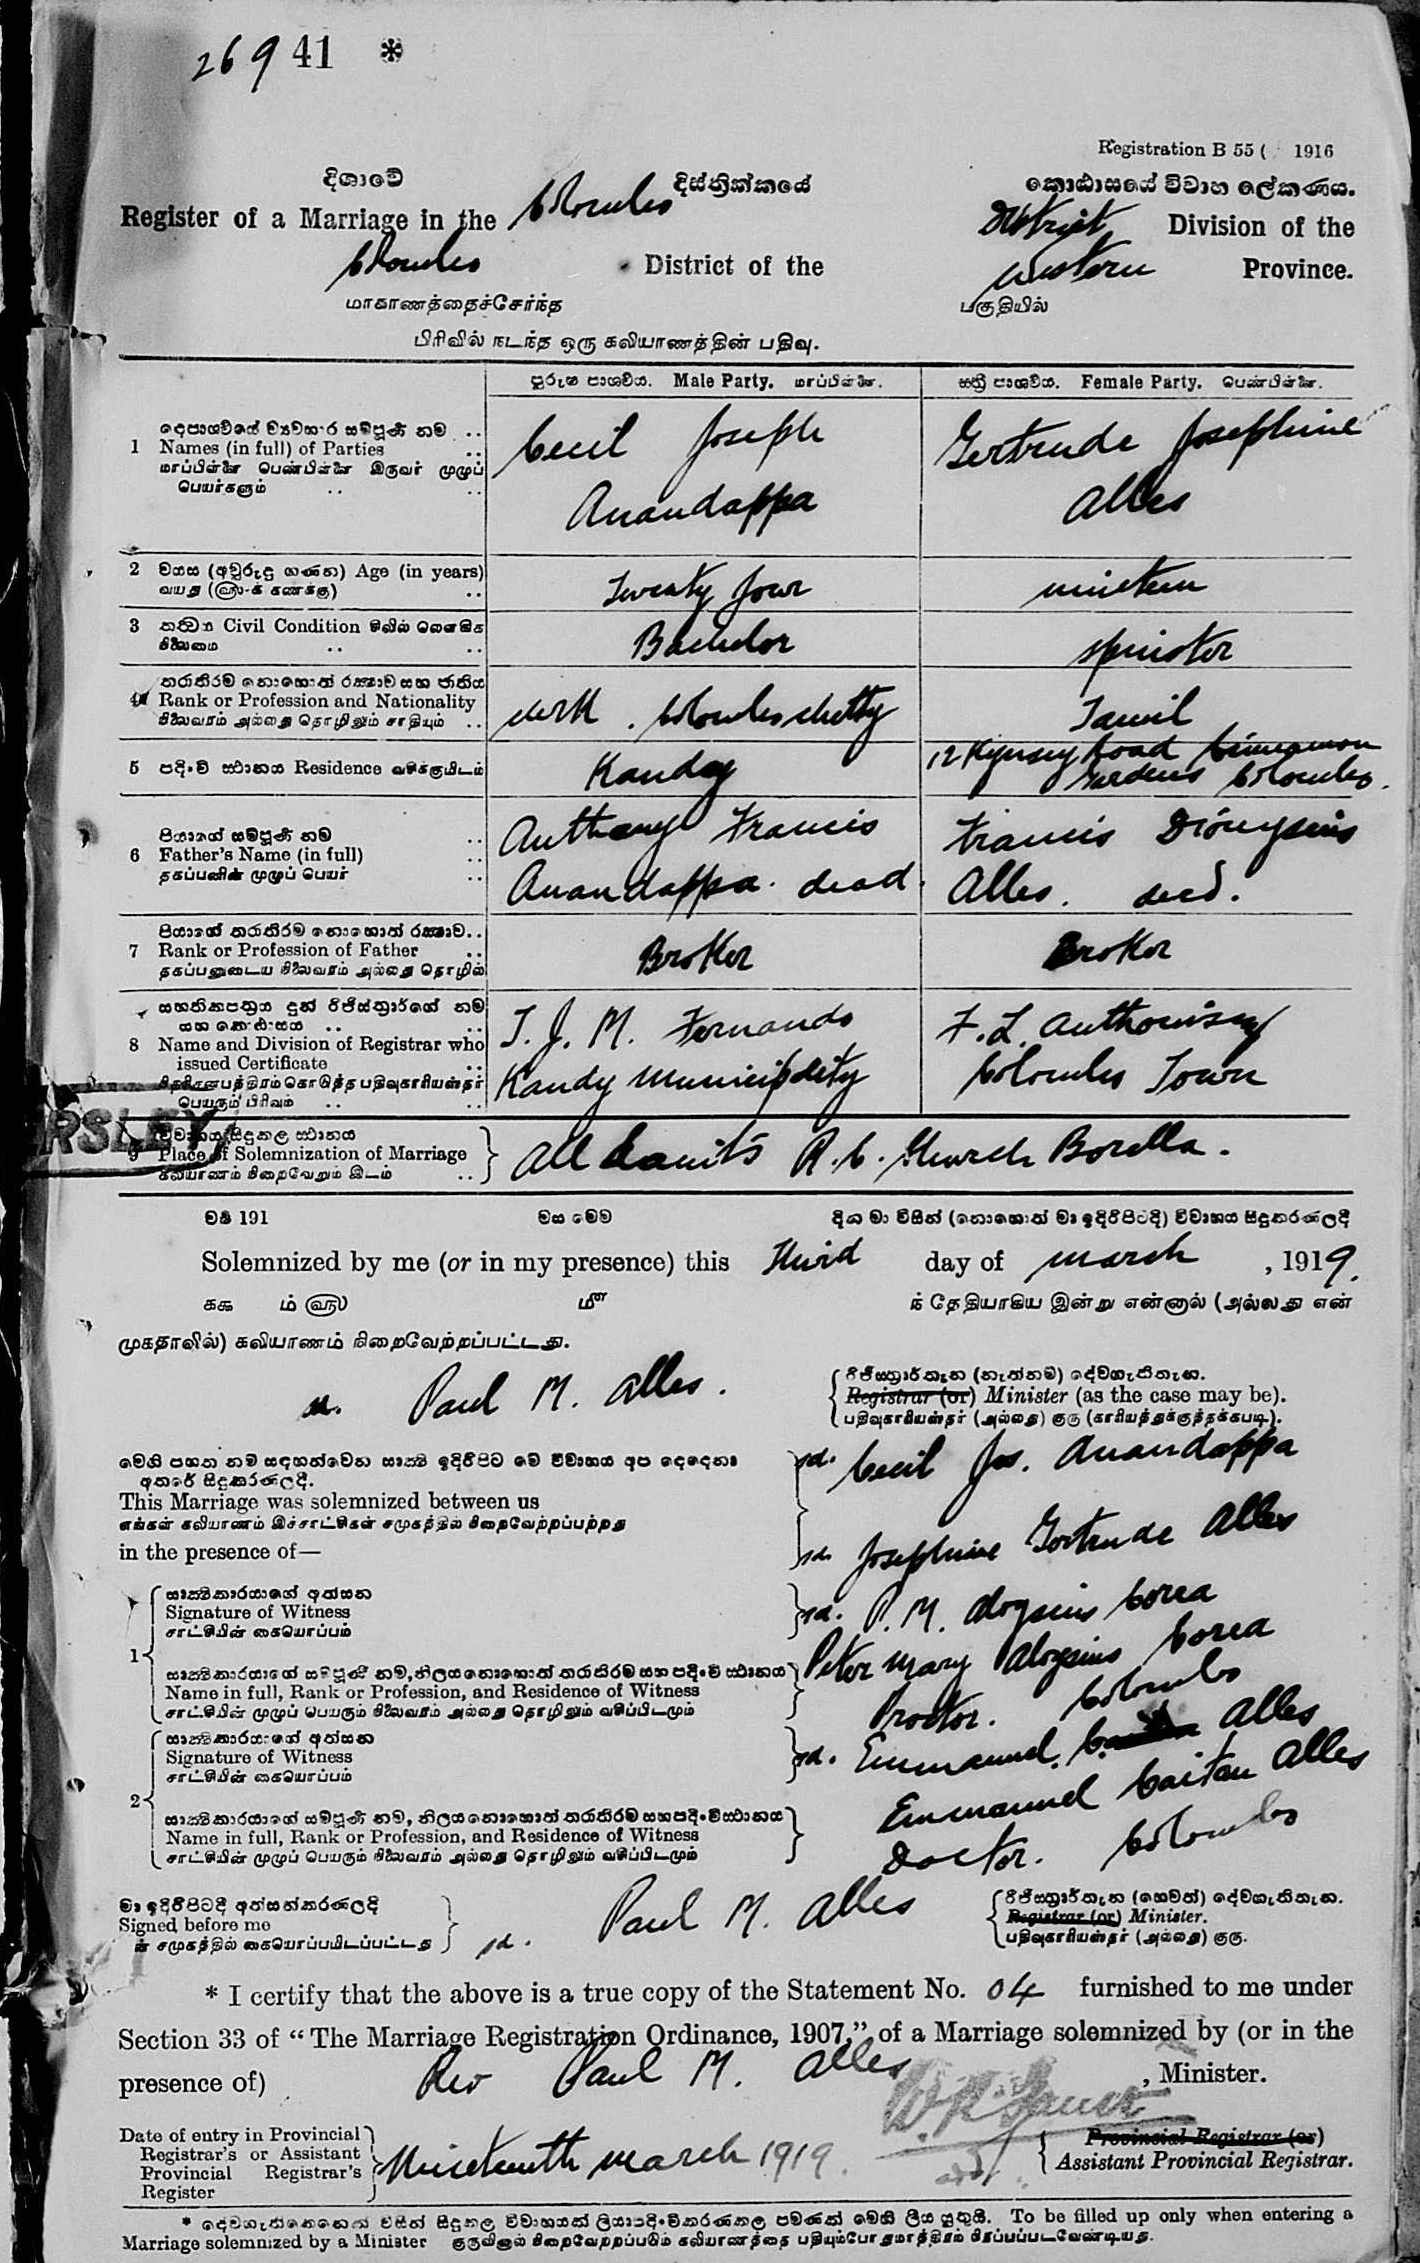 269 41 *
Registration B 55 ( 1916
දිශාවේ දිස්ත්‍රික්කයේ කොඨාසයේ විවාහ ලේකණය.
Register of a Marriage in the Colombo District Division of the
Colombo District of the Western Province.
மாகாணத்தைச்சேர்ந்த பகுதியில்
பிரிவில் நடந்த ஒரு கலியாணத்தின் பதிவு.
Male Party. மாப்பிள்ளை. Female Party. பெண்பிள்ளை.
1 Names (in full) of Parties
மாப்பிள்ளை பெண்பிள்ளை இருவர் முழுப்
பெயர்களும்
Cecil Joseph
Anandappa
Gertrude Josephine
Alles
2 වයස (අවුරුදු ගණන) Age (in years)
வயது
Twenty four
nineteen
3 Civil Condition
நிலைமை
Bachelor
spinster
4 Rank or Profession and Nationality
நிலைவரம் அல்லது தொழிலும் சாதியும்
clerk. Colombo chetty
Tamil
5 පදිංචි ස්ථානය Residence வசிக்குமிடம்
Kandy
12 Kynsey Road Cinnamon
Gardens Colombo.
පියාගේ සම්පූර්ණ නම
6 Father's Name (in full)
தகப்பனின் முழுப் பெயர்
Anthony Francis
Anandappa. dead.
Francis Dionysius
Alles. decd.
7 Rank or Profession of Father
தகப்பனுடைய நிலைவரம் அல்லது தொழில்
Broker
Broker
8 Name and Division of Registrar who
issued Certificate
பெயரும் பிரிவும்
T. J. M. Fernando
Kandy Municipality
F. L. Anthonisz
Colombo Town
RSLEY
9 Place of Solemnization of Marriage
கலியாணம் நிறைவேறும் இடம்
All Saints R. C. Church Borella.
වර්ෂ 191 මස මෙම දින මා විසින් (නොහොත් මා ඉදිරිපිටදී) විවාහය සිදුකරණලදී
Solemnized by me (or in my presence) this third day of march, 1919.
ந் தேதியாகிய இன்று என்னால் (அல்லது என்
முகதாவில்) கலியாணம் நிறைவேற்றப்பட்டது.
sd. Paul M. Alles.
Registrar (or) Minister (as the case may be).
பதிவுகாரியஸ்தர் (அல்லது) குரு (காரியத்துக்குத்தக்கபடி).
This Marriage was solemnized between us
எங்கள் கலியாணம் இச்சாட்சிகள் சமுகத்தில் நிறைவேற்றப்பற்றது
in the presence of—
sd. Cecil Jos. Anandappa
sd. Josephine Gertrude Alles
1 Signature of Witness
சாட்சியின் கையொப்பம்
sd. P. M. Aloysius Corea
Name in full, Rank or Profession, and Residence of Witness
சாட்சியின் முழுப் பெயரும் நிலைவரம் அல்லது தொழிலும் வசிப்பிடமும்
Peter Mary Aloysius Corea
Proctor. Colombo
2 Signature of Witness
சாட்சியின் கையொப்பம்
sd. Emmanuel. Alles
Name in full, Rank or Profession, and Residence of Witness
சாட்சியின் முழுப் பெயரும் நிலைவரம் அல்லது தொழிலும் வசிப்பிடமும்
Emmanuel Caitan Alles
Doctor. Colombo
Signed before me
ன் சமுகத்தில் கையொப்பமிடப்பட்டது
sd. Paul M. Alles
Registrar (or) Minister.
பதிவுகாரியஸ்தர் (அல்லது) குரு.
* I certify that the above is a true copy of the Statement No. 04 furnished to me under
Section 33 of “The Marriage Registration Ordinance, 1907,” of a Marriage solemnized by (or in the
presence of) Rev Paul M. Alles, Minister.
Date of entry in Provincial
Registrar's or Assistant
Provincial Registrar's
Register
Nineteenth march 1919.
Provincial Registrar (or)
Assistant Provincial Registrar.
* To be filled up only when entering a
Marriage solemnized by a Minister